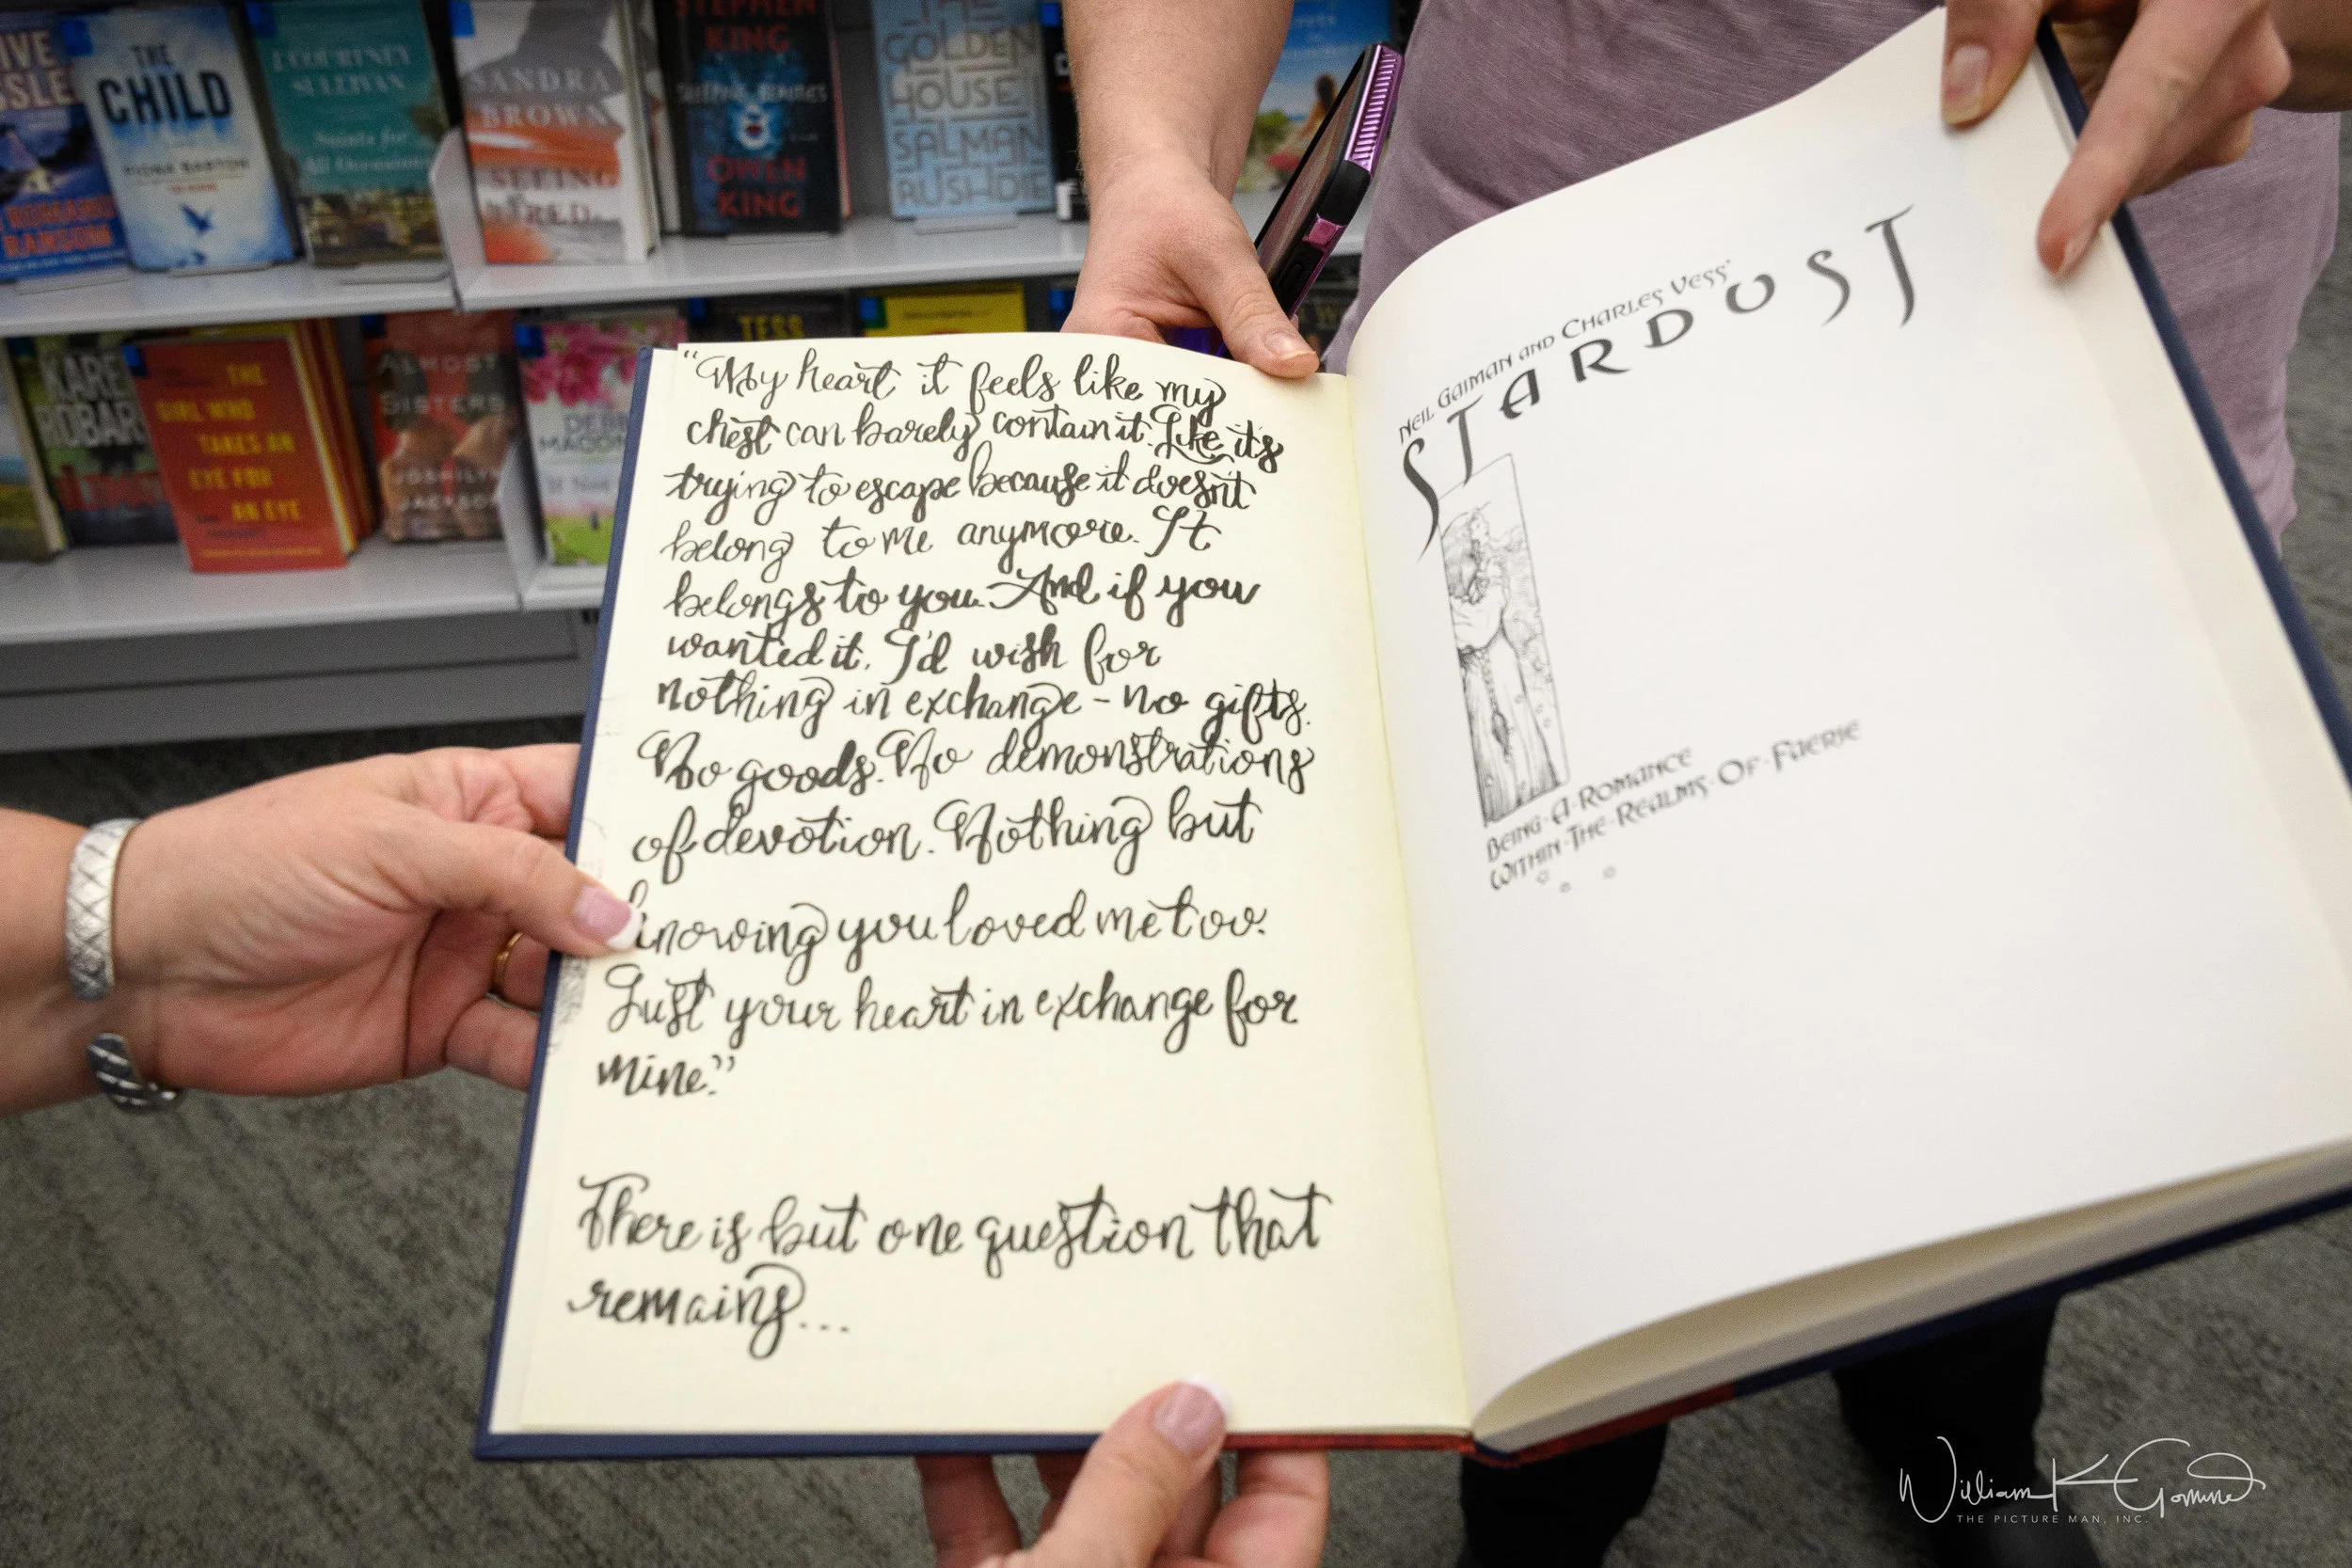 THE
CHILD
FIONA BARTON
J. COURTNEY
SULLIVAN
Saints for
All Occasions
SANDRA
BROWN
SEEING
RED
STEPHEN
KING
SLEEPING BEAUTIES
OWEN
KING
THE
GOLDEN
HOUSE
SALMAN
RUSHDIE
ROMANOV
RANSOM
KAREN
ROBARDS
THE
GIRL WHO
TAKES AN
EYE FOR
AN EYE
ALMOST
SISTERS
JOSHILYN
JACKSON
TESS
"My heart it feels like my
chest can barely contain it. Like it's
trying to escape because it doesn't
belong to me anymore. It
belongs to you. And if you
wanted it, I'd wish for
nothing in exchange - no gifts.
No goods. No demonstrations
of devotion. Nothing but
knowing you loved me too.
Just your heart in exchange for
mine."
There is but one question that
remains...
NEIL GAIMAN AND CHARLES VESS'
STARDUST
BEING·A·ROMANCE
WITHIN·THE·REALMS·OF·FAERIE
William K
THE PICTURE MAN, INC.